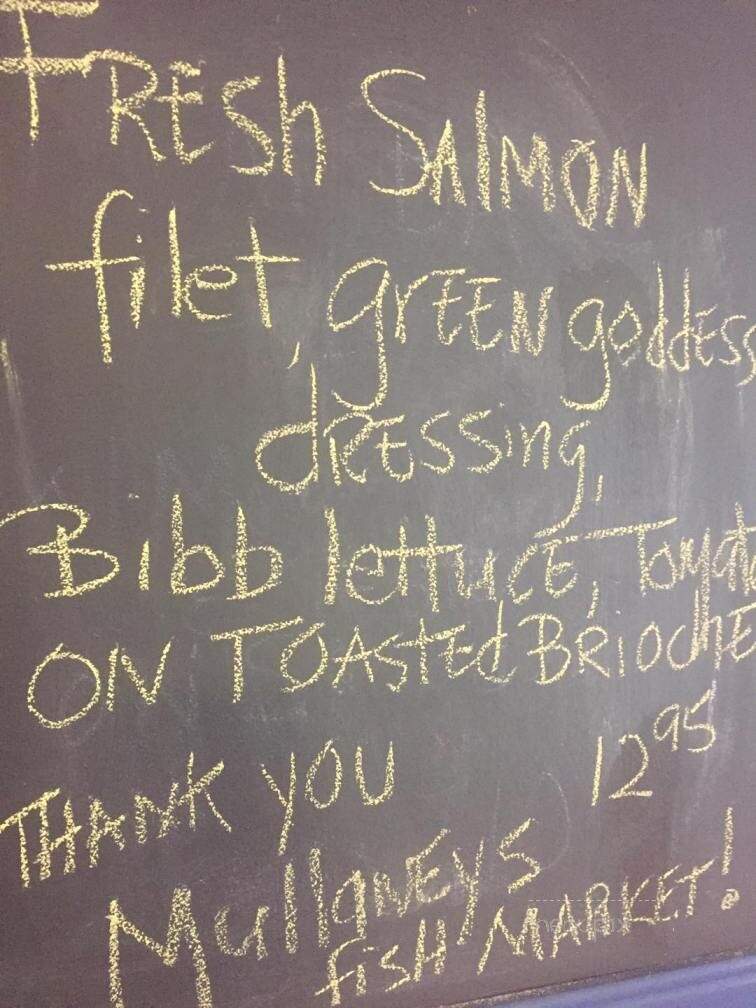 FRESh SAlMON
filet, grEEN goddess
dRESSing,
Bibb lettucE, Tomato
ON TOAStEd BRIOChE
THANK YOU 12 95
MullaNEYS
fiSH MARKET!